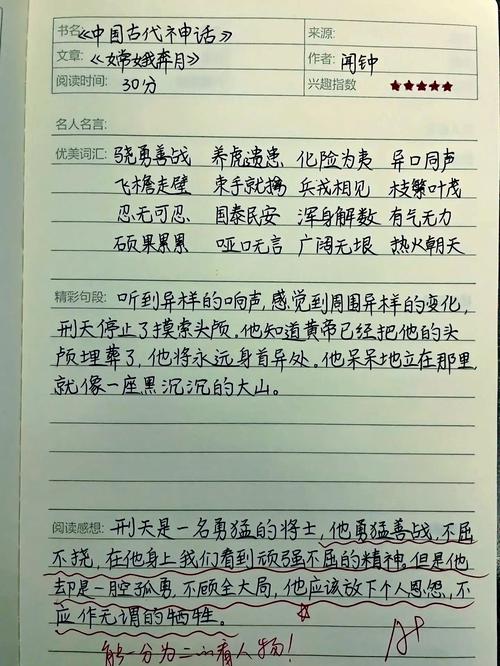 书名《中国古代神话》 来源:
文章:《嫦娥奔月》 作者: 闻钟
阅读时间: 30分 兴趣指数 ★★★★★
名人名言:
优美词汇: 骁勇善战 养虎遗患 化险为夷 异口同声
飞檐走壁 束手就擒 兵戎相见 枝繁叶茂
忍无可忍 国泰民安 浑身解数 有气无力
硕果累累 哑口无言 广阔无垠 热火朝天
精彩句段: 听到异样的响声,感觉到周围异样的变化,
刑天停止了摸索头颅。他知道黄帝已经把他的头
颅埋葬了,他将永远身首异处。他呆呆地立在那里,
就像一座黑沉沉的大山。
阅读感想: 刑天是一名勇猛的将士,他勇猛善战,不屈
不挠,在他身上我们看到顽强不屈的精神。但是他
却是一腔孤勇,不顾全大局,他应该放下个人恩怨,不
应作无谓的牺牲。
能一分为二的看人物! A+